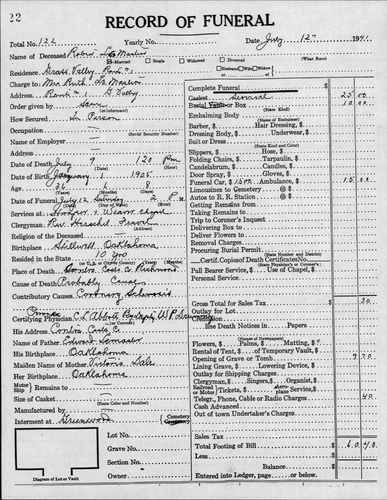 22
RECORD OF FUNERAL
Total No. 122 Yearly No. Date July 12 1941
Name of Deceased
Married Single Widowed Divorced (What Race)
Residence Grass Valley
Husband Wife
Charge to Mrs Ruth
Address
Order given by Same
How Secured In Person
Occupation (Social Security Number)
Name of Employer
Address
Date of Death July 9 1 20 Pm
Date of Birth January 1 1905
Age 36 6 8
Date of Funeral July 12 Saturday 2 P.M.
Services at Hooper & Weaver Chapel
Clergyman Rev. Herschel
Religion of the Deceased
Birthplace Stillwell Oaklahoma
Resided in the State 10 yrs
Place of Death Contra Costa Co Richmond
Cause of Death Probably
Contributory Causes Coronary Sclerosis
Certifying Physician C L Abbott
His Address Contra Costa Co
Name of Father Edward
His Birthplace Oaklahoma
Maiden Name of Mother Victoria
Her Birthplace Oaklahoma
Motor Ship Remains to
Size of Casket (State Color and Number)
Manufactured by
Interment at Greenwood Cemetery
Lot No.
Grave No.
Section No.
Owner
Diagram of Lot or Vault
Complete Funeral
Casket 25 00
Burial Vault or Box 10 00
(State Kind)
Embalming Body
(State Name of Embalmer)
Barber, $ Hair Dressing, $
Dressing Body, $ Underwear, $
Suit or Dress
(State Kind and Color)
Slippers, $ Hose, $
Folding Chairs, $ Tarpaulin, $
Candelabrum, $ Candles, $
Door Spray, $ Gloves, $
Funeral Car, $ 15.00 Ambulance, $ 15 00
Limousines to Cemetery @ $
Autos to R. R. Station @ $
Getting Remains from
Taking Remains to
Trip to Coroner's Inquest
Delivering Box to
Deliver Flowers to
Removal Charges
Procuring Burial Permit
(State Number and District)
Certif. Copies of Death Certificates No.
(State Physician's or Coroner's)
Pall Bearer Service, $ Use of Chapel, $
Personal Service
Gross Total for Sales Tax
Outlay for Lot
line Death Notices in Papers
(Names of Newspapers)
Flowers, $ Palms, $ Matting, $
Rental of Tent, $ of Temporary Vault, $
Opening of Grave or Tomb
Lining Grave, $ Lowering Device, $
Outlay for Shipping Charges
Clergyman, $ Singers, $ Organist, $
Tickets, $
Telegr., Phone, Cable or Radio Charges
Cash Advanced
Out of town Undertaker's Charges
Sales Tax
Total Footing of Bill $
Less
Balance
Entered into Ledger, page or below.